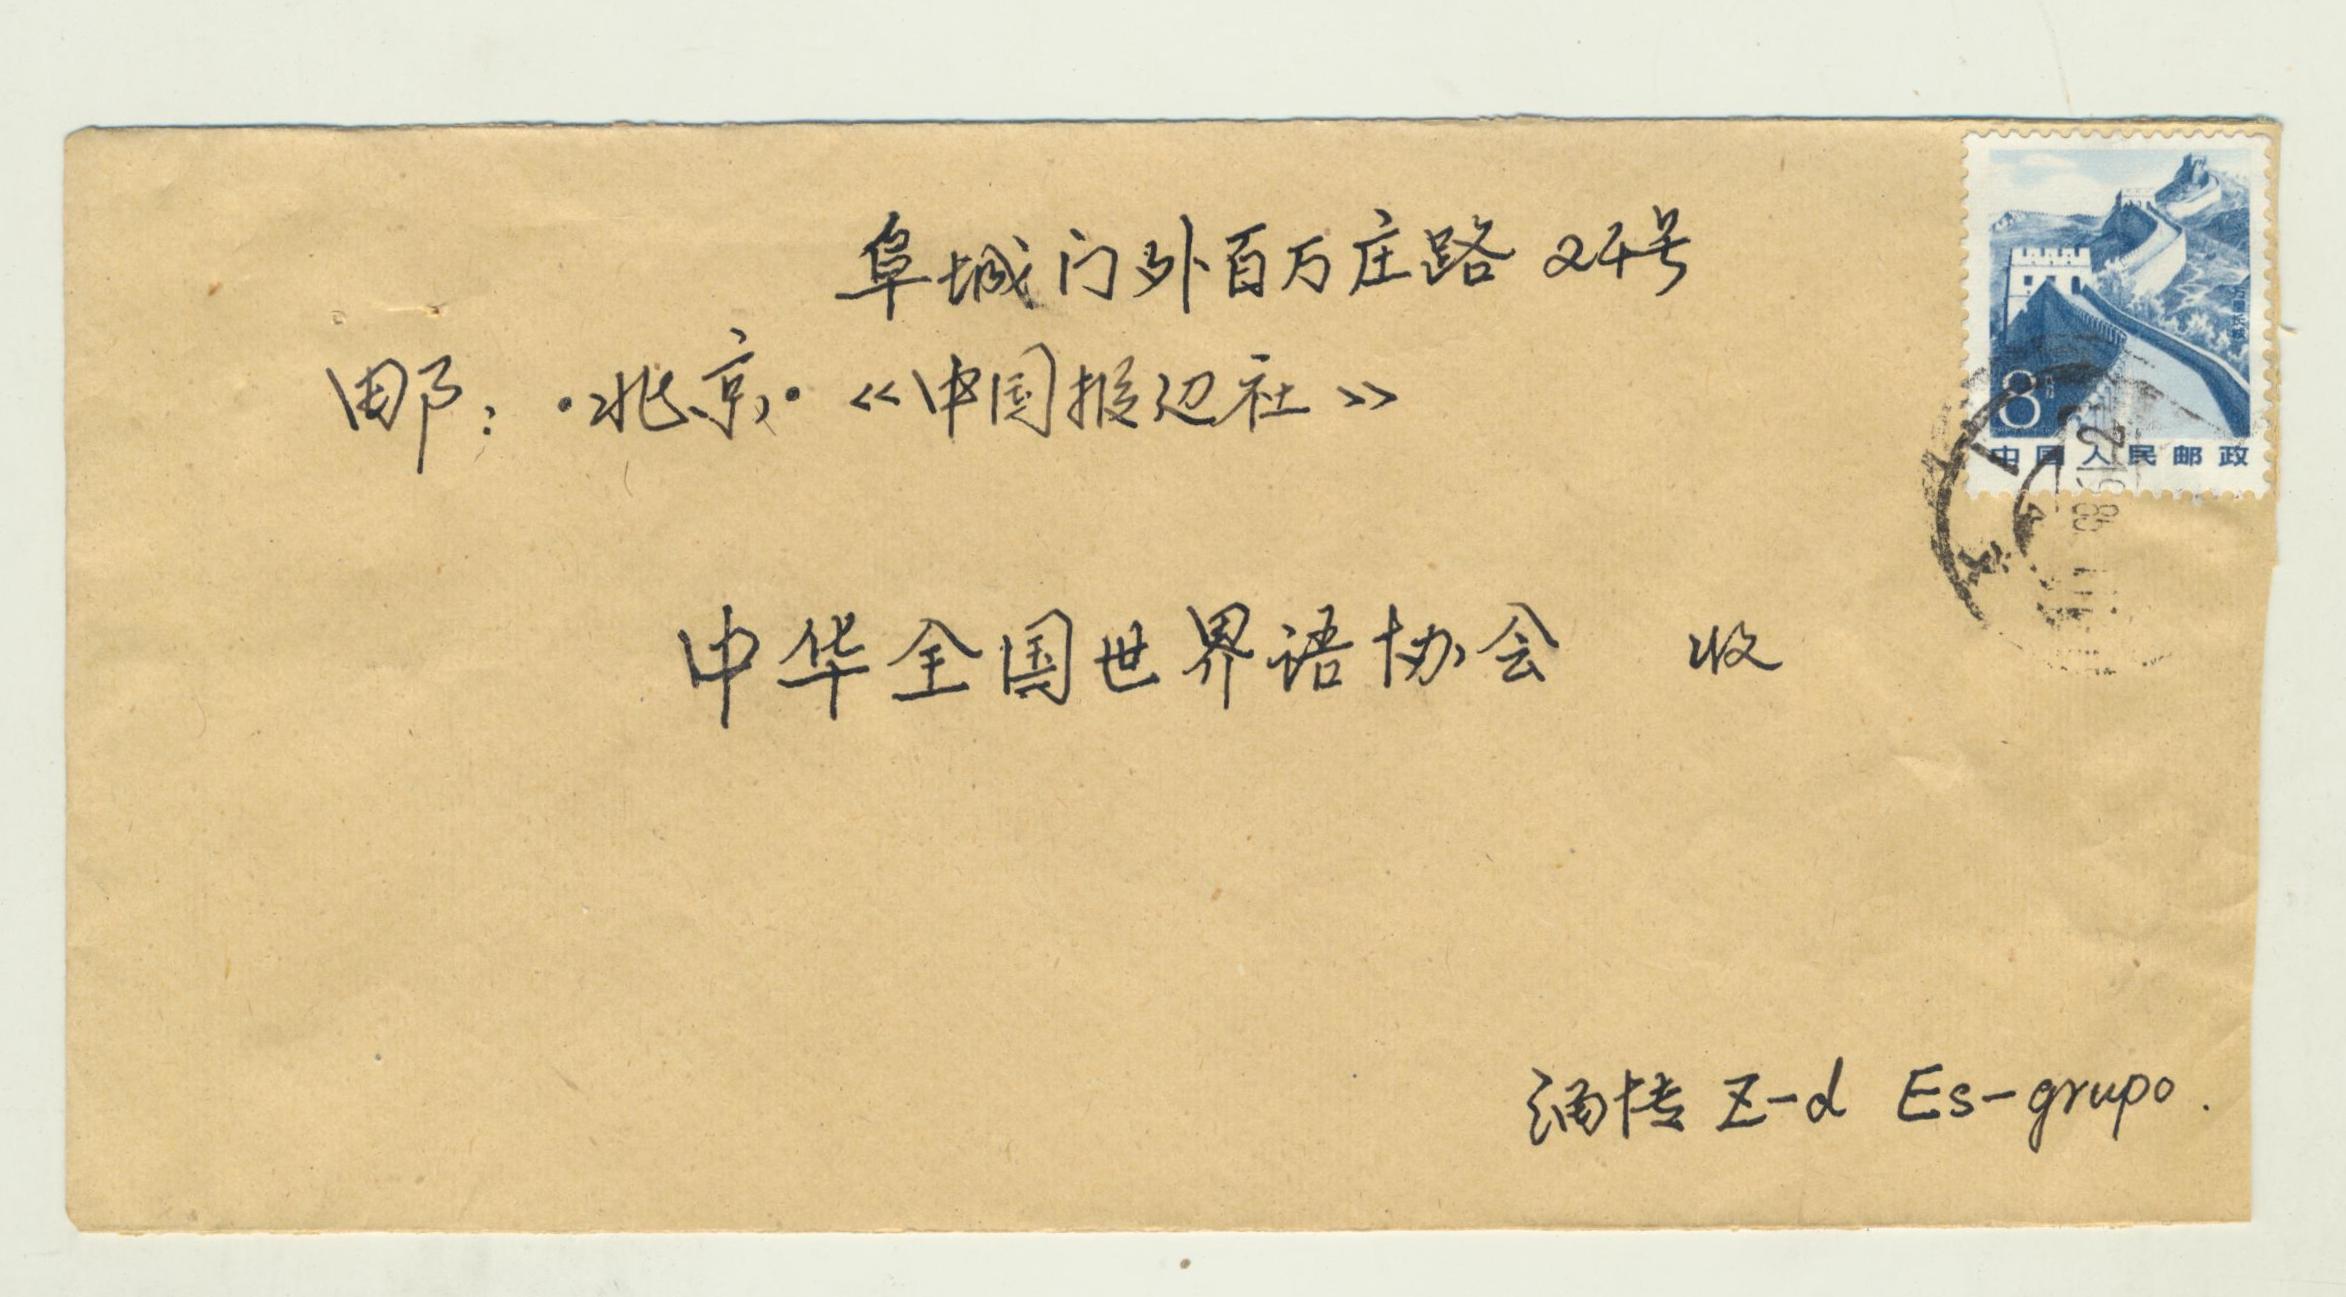 阜城门外百万庄路 24号
邮：·北京·《中国报边社》
中华全国世界语协会 收
Z-d Es-grupo.
8分
中国人民邮政